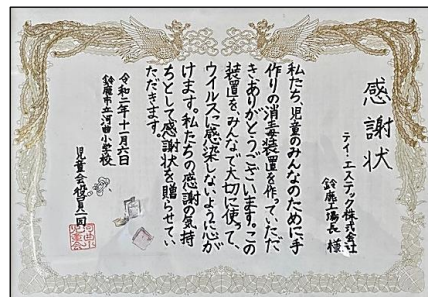 感謝状
テイ・エステック株式会社
鈴鹿工場長 様
私たち児童のみんなのために手
作りの消毒装置を作っていただ
きありがとうございます。この
装置をみんなで大切に使って、
ウイルスに感染しないように心が
けます。私たちの感謝の気持
ちとして感謝状を贈らせてい
ただきます。
令和二年十一月六日
鈴鹿市立河曲小学校
児童会役員一同